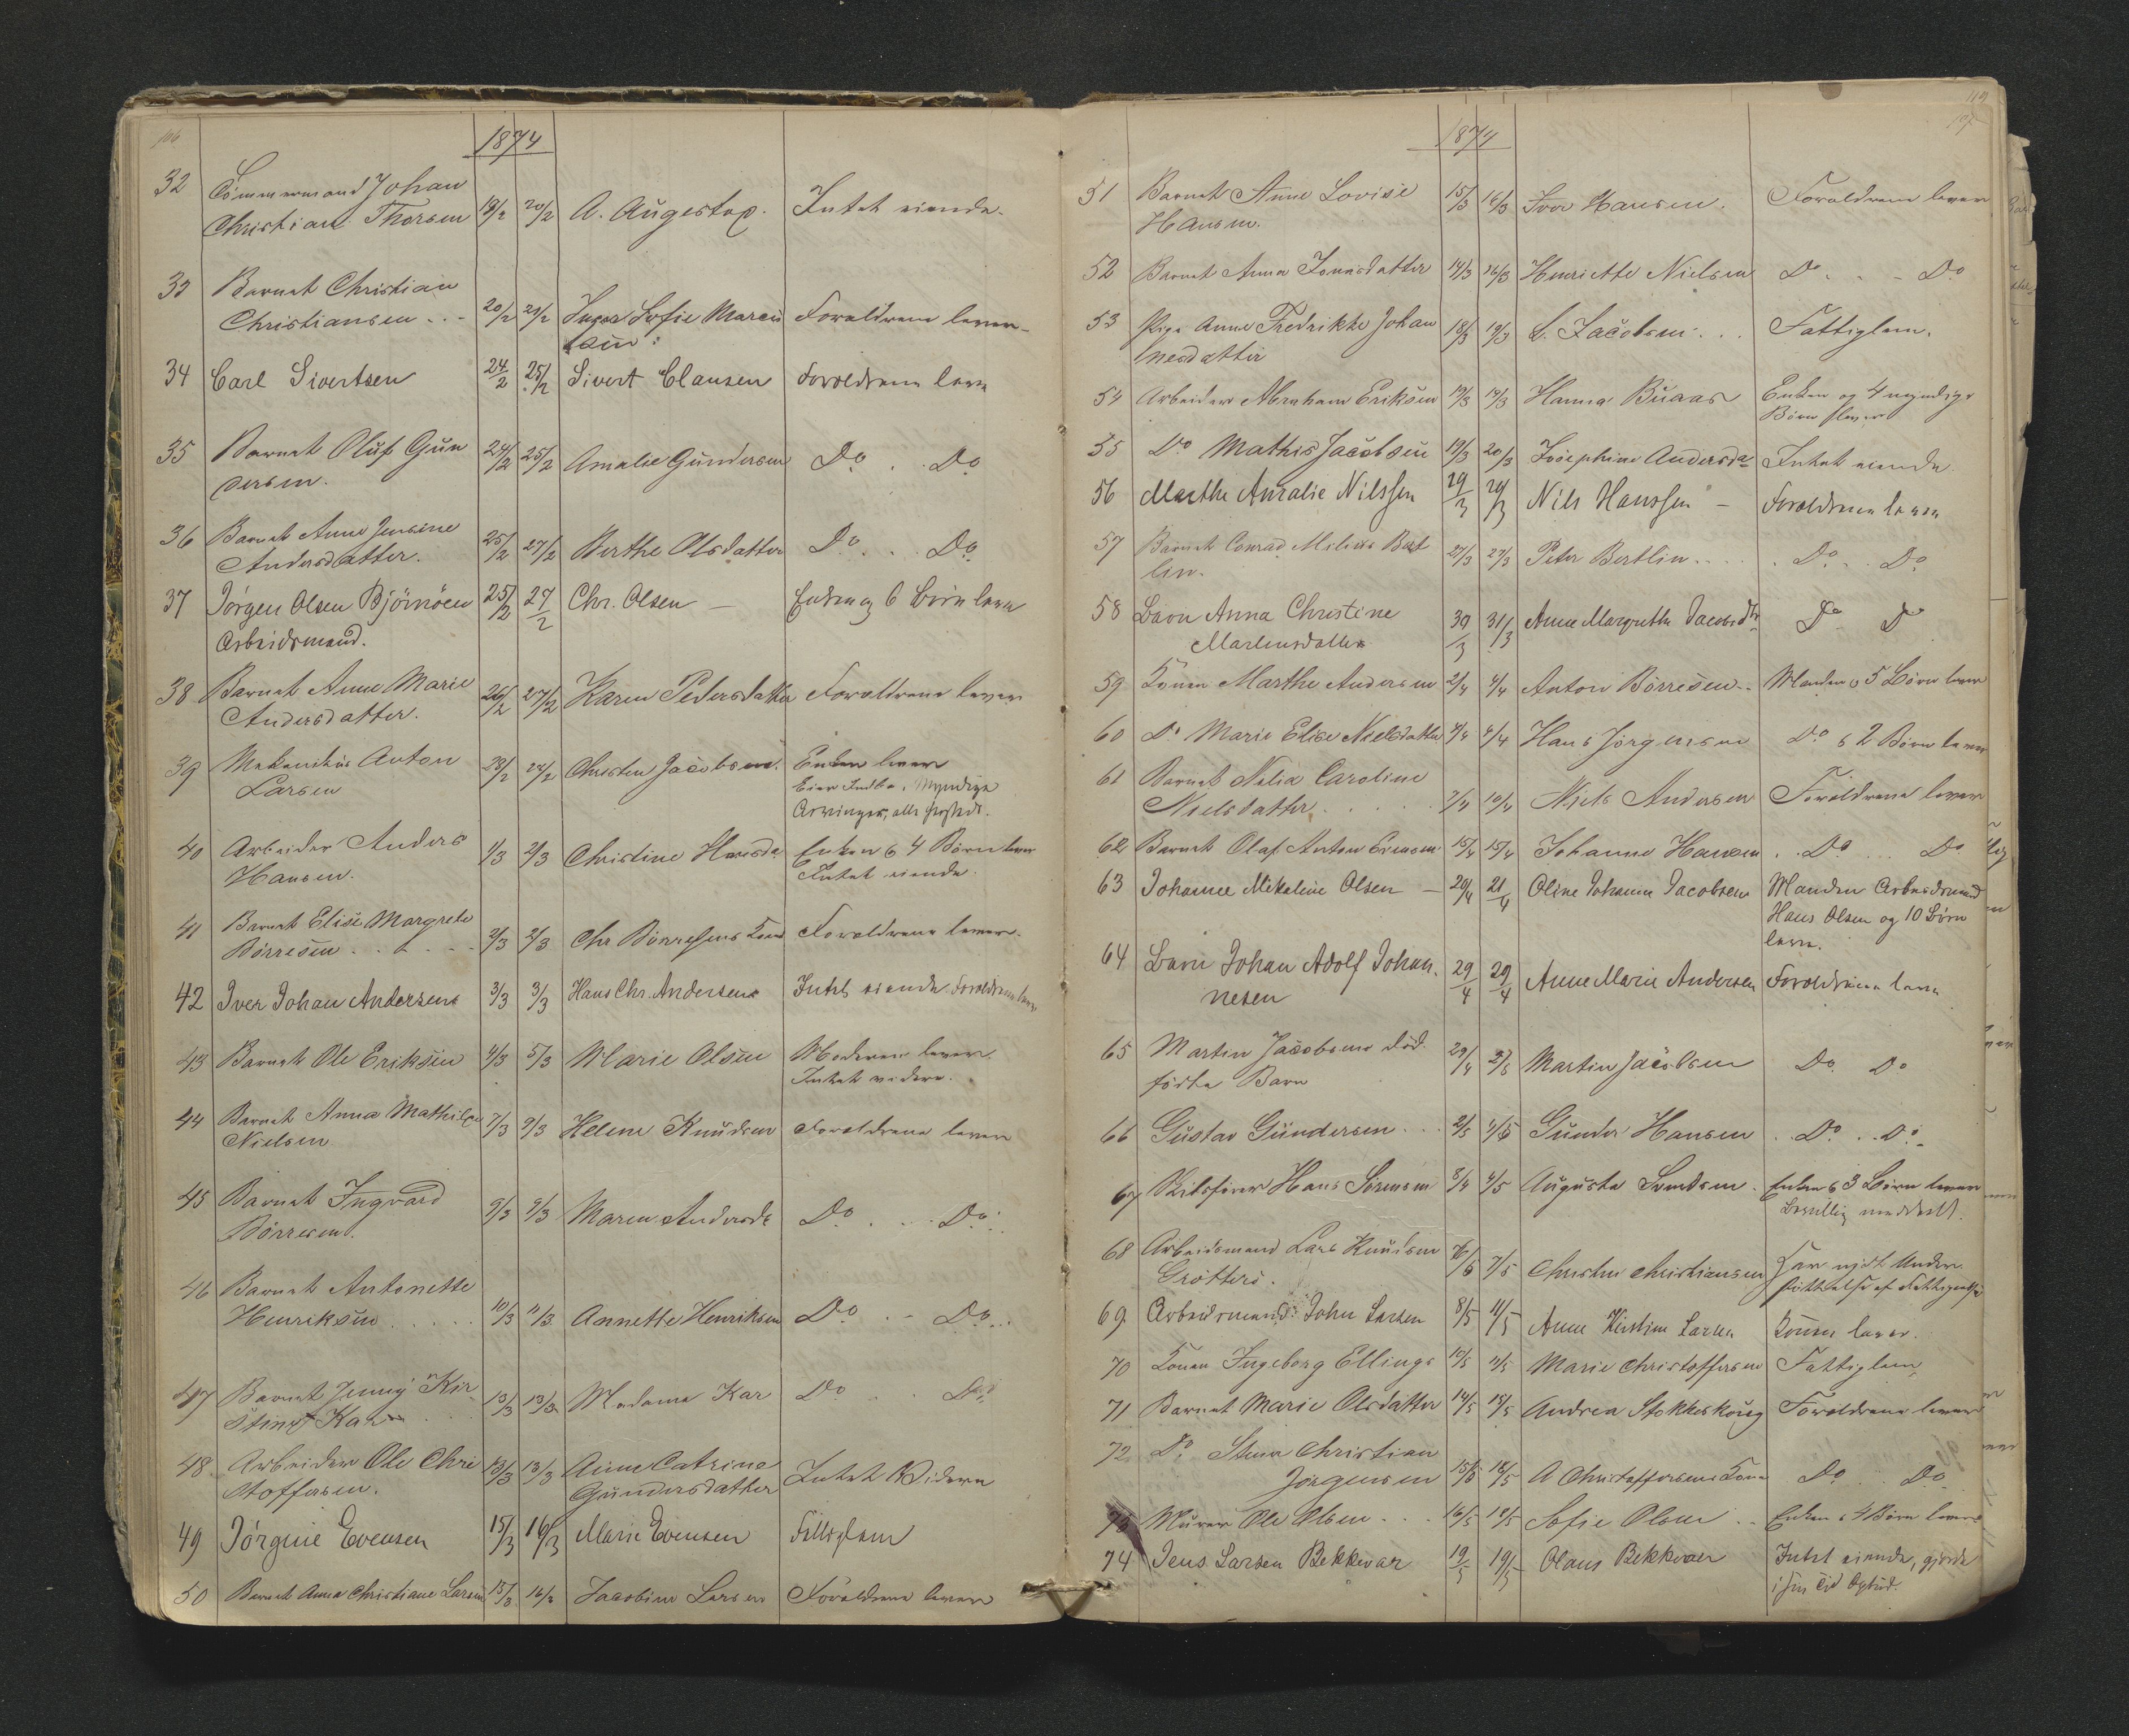 106
1874
32 Tömmermand Johan
Christian Thorsen 19/2 20/2 A. Augestop. Intet eiende.
33 Barnet Christian
Christiansen . . - 20/2 21/2 Sofie Marcu Forældrene lever
34 Carl Sivertsen 24/2 25/2 Sivert Clausen Forældrene leve
35 Barnet Oluf Gun 24/2 25/2 Amalie Gundersen Do . . Do
dersen.
36 Barnet Anne Jensine
Andersdatter. 25/2 27/2 Berthe Olsdatter Do . . . Do
37 Jörgen Olsen Björnöen 25/2 27/2 Chr. Olsen — Enken og 6 Börn leve
Arbeidsmand.
38 Barnet Anne Marie 26/2 27/2 Karen Pedersdatter Forældrene lever
Andersdatter.
39 Mekanikus Anton Christen Jacobsen. Enken lever
Larsen Eier Indbo. Myndige
Arvinger, alle
40 Arbeider Anders 1/3 2/3 Christine Hansda Enken & 4 Börn lever
Hansen. Intet eiende.
41 Barnet Elise Margrete 2/3 2/3 Chr Börresens Kone Forældrene lever.
Börresen . . . . .
42 Iver Johan Andersen 3/3 3/3 Hans Chr. Andersen Intet eiende. Forældrene leve
43 Barnet Ole Eriksen 4/3 5/3 Marie Olsen Moderen lever.
Intet videre.
44 Barnet Anna Mathilde 7/3 9/3 Helene Knudsen Forældrene lever
Nielsen
45 Barnet Ingvard 9/3 9/3 Maren Andersda Do . . . Do
Börresen.
46 Barnet Antonette
Henriksen . . . . . 10/3 11/3 Annette Henriksen Do . . - Do . .
47 Barnet Jenny Kir- 13/3 13/3 Madame Kar Do . . Do
stine Kar
48 Arbeider Ole Chri 13/3 13/3 Anne Catrine Intet Videre
stoffersen. Gundersdatter
49 Jörgine Evensen 15/3 16/3 Marie Evensen Fattiglem
50 Barnet Anna Christiane Larsen 15/3 16/3 Jacobine Larsen Forældrene lever
1874
51 Barnet Anne Lovise 15/3 16/3 Iver Hansen. Forældrene lever
Hansen.
52 Barnet Anna Jonasdatter 14/3 16/3 Henriette Nielsen Do . . - Do
53 Pige Anne Fredrikke Johan 18/3 19/3 L. Jacobsen . . . Fattiglem.
nesdatter
54 Arbeider Abraham Eriksen 19/3 19/3 Hanna Buaas Enken og 4 myndige
Börn lever
55 Do Mathis Jacobsen 19/3 20/3 Josephine Andersda Intet eiende
56 Marthe Amalie Nilssen 29/3 Nils Hanssen — Forældrene leve
57 Barnet Conrad Milius Bert 27/3 27/3 Peter Bertlin . . . . . Do . . Do
lin.
58 Barn Anna Christine 30/3 31/3 Anne Margrethe Jacobsdtr Do Do
Martinsdatter
59 Konen Marthe Andersen 2/4 4/4 Anton Börresen . . Manden & 5 Börn lever
60 Do Marie Elise Nielsdatter 4/4 4/4 Hans Jörgensen Do & 2 Börn lever
61 Barnet Nelia Caroline
Nielsdatter . . . . . 7/4 10/4 Niels Andersen Forældrene lever
62 Barnet Olaf Anton 15/4 15/4 Johanne Hansen . Do . . . Do
63 Johanne Mikeline Olsen — 20/4 21/4 Oline Johanne Jacobsen Manden Arbeidsmand
Hans Olsen og 10 Börn
leve.
64 Barn Johan Adolf Johan- 29/4 29/4 Anne Marie Andersen Forældrene leve
nesen
65 Martin Jacobsens död- 29/4 Martin Jacobsen Do. Do
födte Barn
66 Gustav Gundersen . . . 2/5 4/5 Gunder Hansen . Do . . Do
67 Hans Sörensen Augusta Svendsen . Enken & 3 Börn lever
Bevilling meddelt.
68 Arbeidsmand Lars Knudsen 7/5 Christine Christiansen Har nydt Under
Gröttere. stöttelse af Fattigvæs
69. Arbeidsmand: John Larsen 8/5 11/5 Anne Kirstine Larsen Konen lever.
70 Konen Ingeborg Ellings 10/5 11/5 Marie Christoffersen Fattiglem,
71 Barnet Marie Olsdatter 14/5 15/5 Andrea Stokkeskoug Forældrene lever
72. Do Christian
Jörgensen 15/5 18/5 A Christoffersens Kone Do . . Do
73 Murer Ole Olsen . . . 16/5 18/5 Sofie Olsen . . Enken & 4 Börn lever
74 Jens Larsen Bekkevar 19/5 19/5 Olaus Bekkevar Intet eiende, gjorde
i sin Tid Opbud.